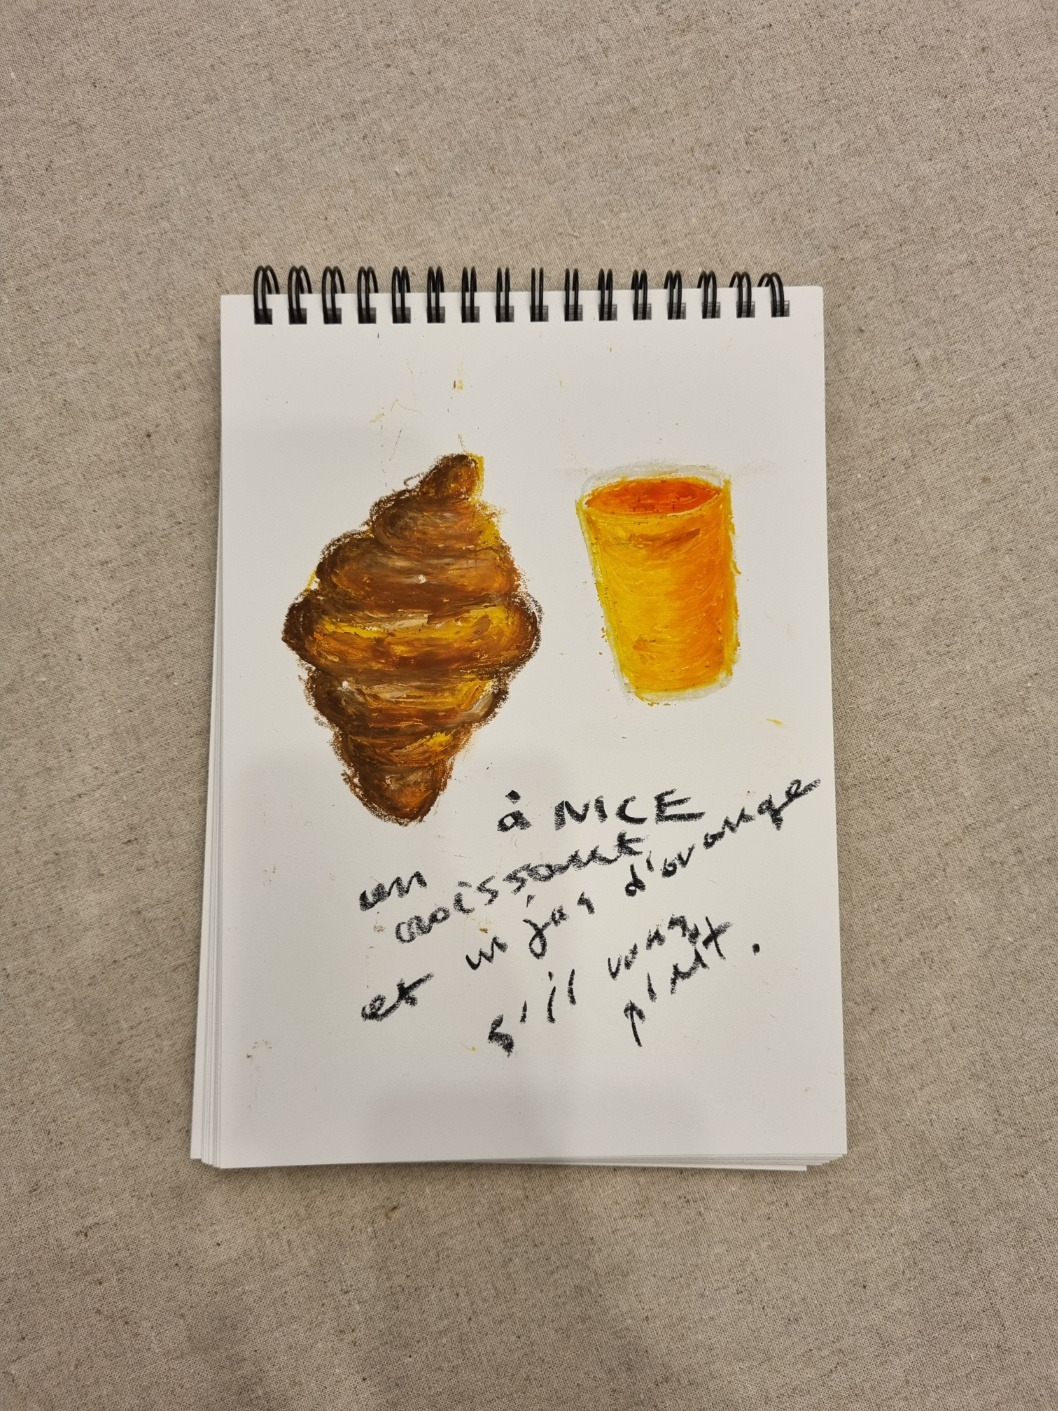 à NICE
un
croissant
et un jus d'orange
s'il vous
plaît.